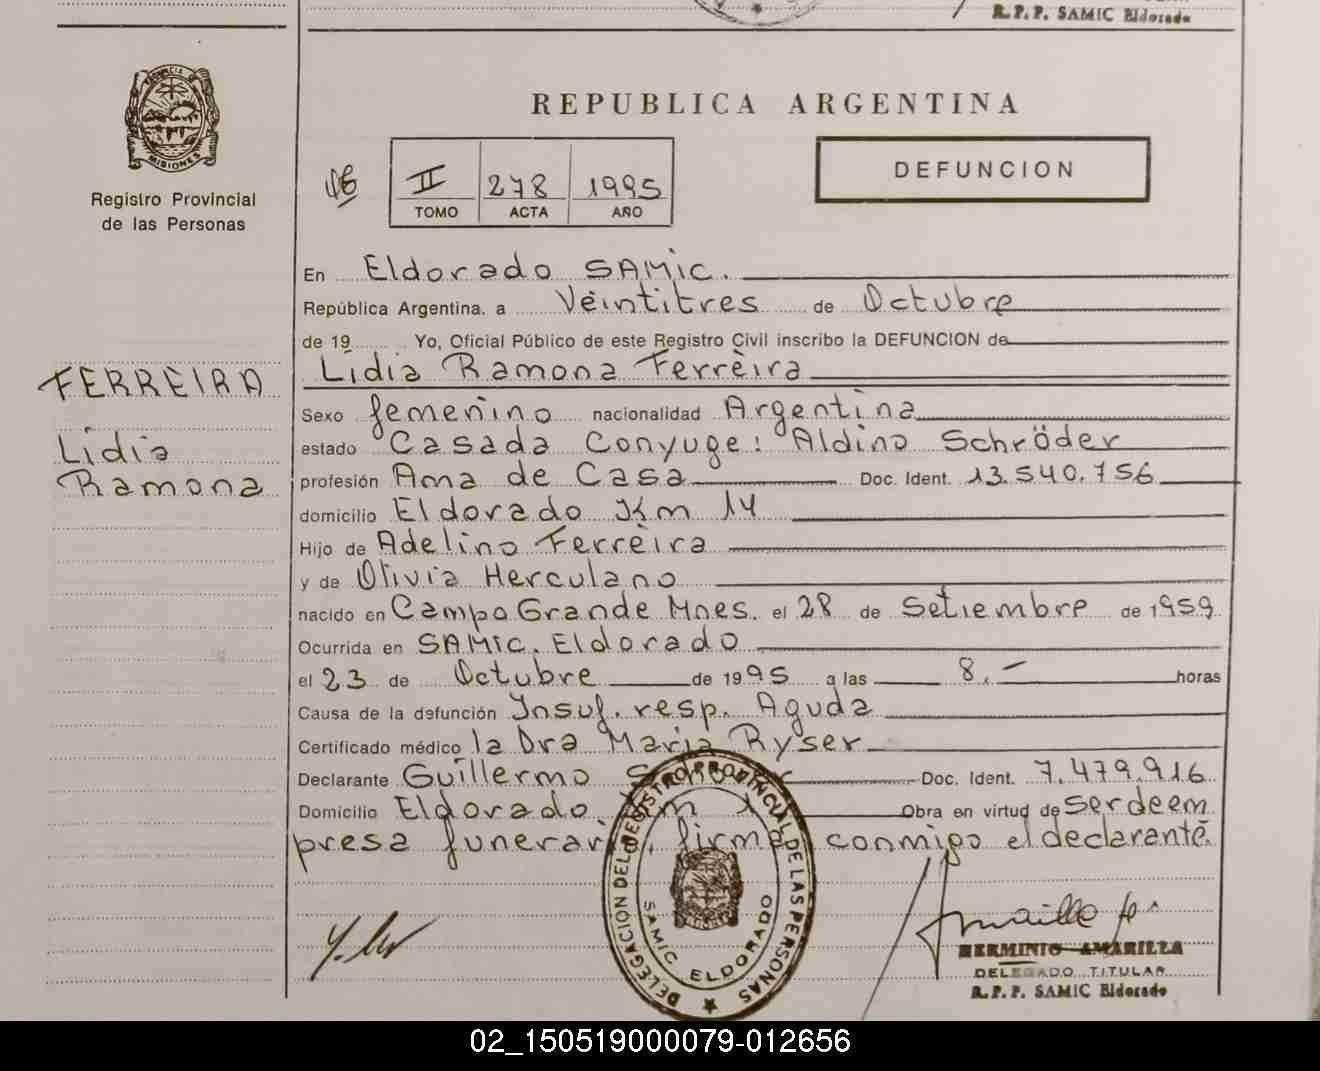 R.P.P. SAMIC Eldorado
PROVINCIA DE
MISIONES
Registro Provincial
de las Personas
REPUBLICA ARGENTINA
II 278 1995
TOMO ACTA AÑO
DEFUNCION
En Eldorado SAMIC.
República Argentina, a Veintitres de Octubre
de 19 Yo, Oficial Público de este Registro Civil inscribo la DEFUNCION de
Lidia Ramona Ferreira
FERREIRA
Lidia
Ramona
Sexo femenino nacionalidad Argentina
estado Casada Conyuge: Aldino Schröder
profesión Ama de Casa Doc. Ident. 13.540.756
domicilio Eldorado Km 14
Hijo de Adelino Ferreira
y de Olivia Herculano
nacido en Campo Grande Mnes. el 28 de Setiembre de 1959
Ocurrida en SAMIC. Eldorado
el 23 de Octubre de 1995 a las 8.- horas
Causa de la defunción Insuf. resp. Aguda
Certificado médico la Dra Maria Ryser
Declarante Guillermo Doc. Ident. 7.479.916
Domicilio Eldorado Obra en virtud de ser de em
presa funeraria. firma conmigo el declarante.
DELEGACION DEL REGISTRO PROVINCIAL DE LAS PERSONAS
SAMIC ELDORADO
HERMINIO AMARILLA
DELEGADO TITULAR
R.P.P. SAMIC Eldorado
02_150519000079-012656